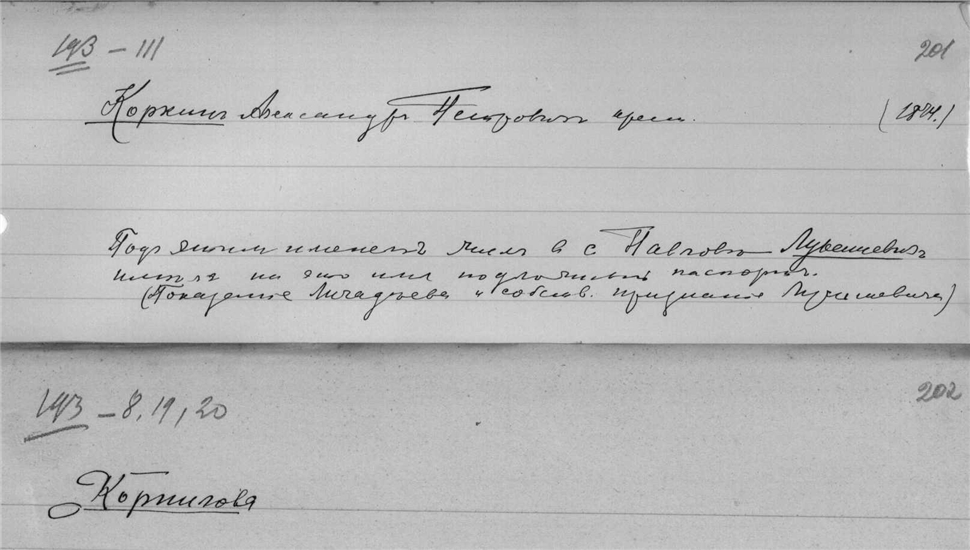 193 – 111 201
Коркинъ Александръ Петровичъ крест. (1874.)
Подъ этимъ именемъ жилъ въ с Павловѣ Лукашевичъ
имѣя на это имя подложный паспортъ.
(Показаніе Личадѣева и собств. признаніе Лукашевича)
193 – 8, 19, 20 202
Корнилова